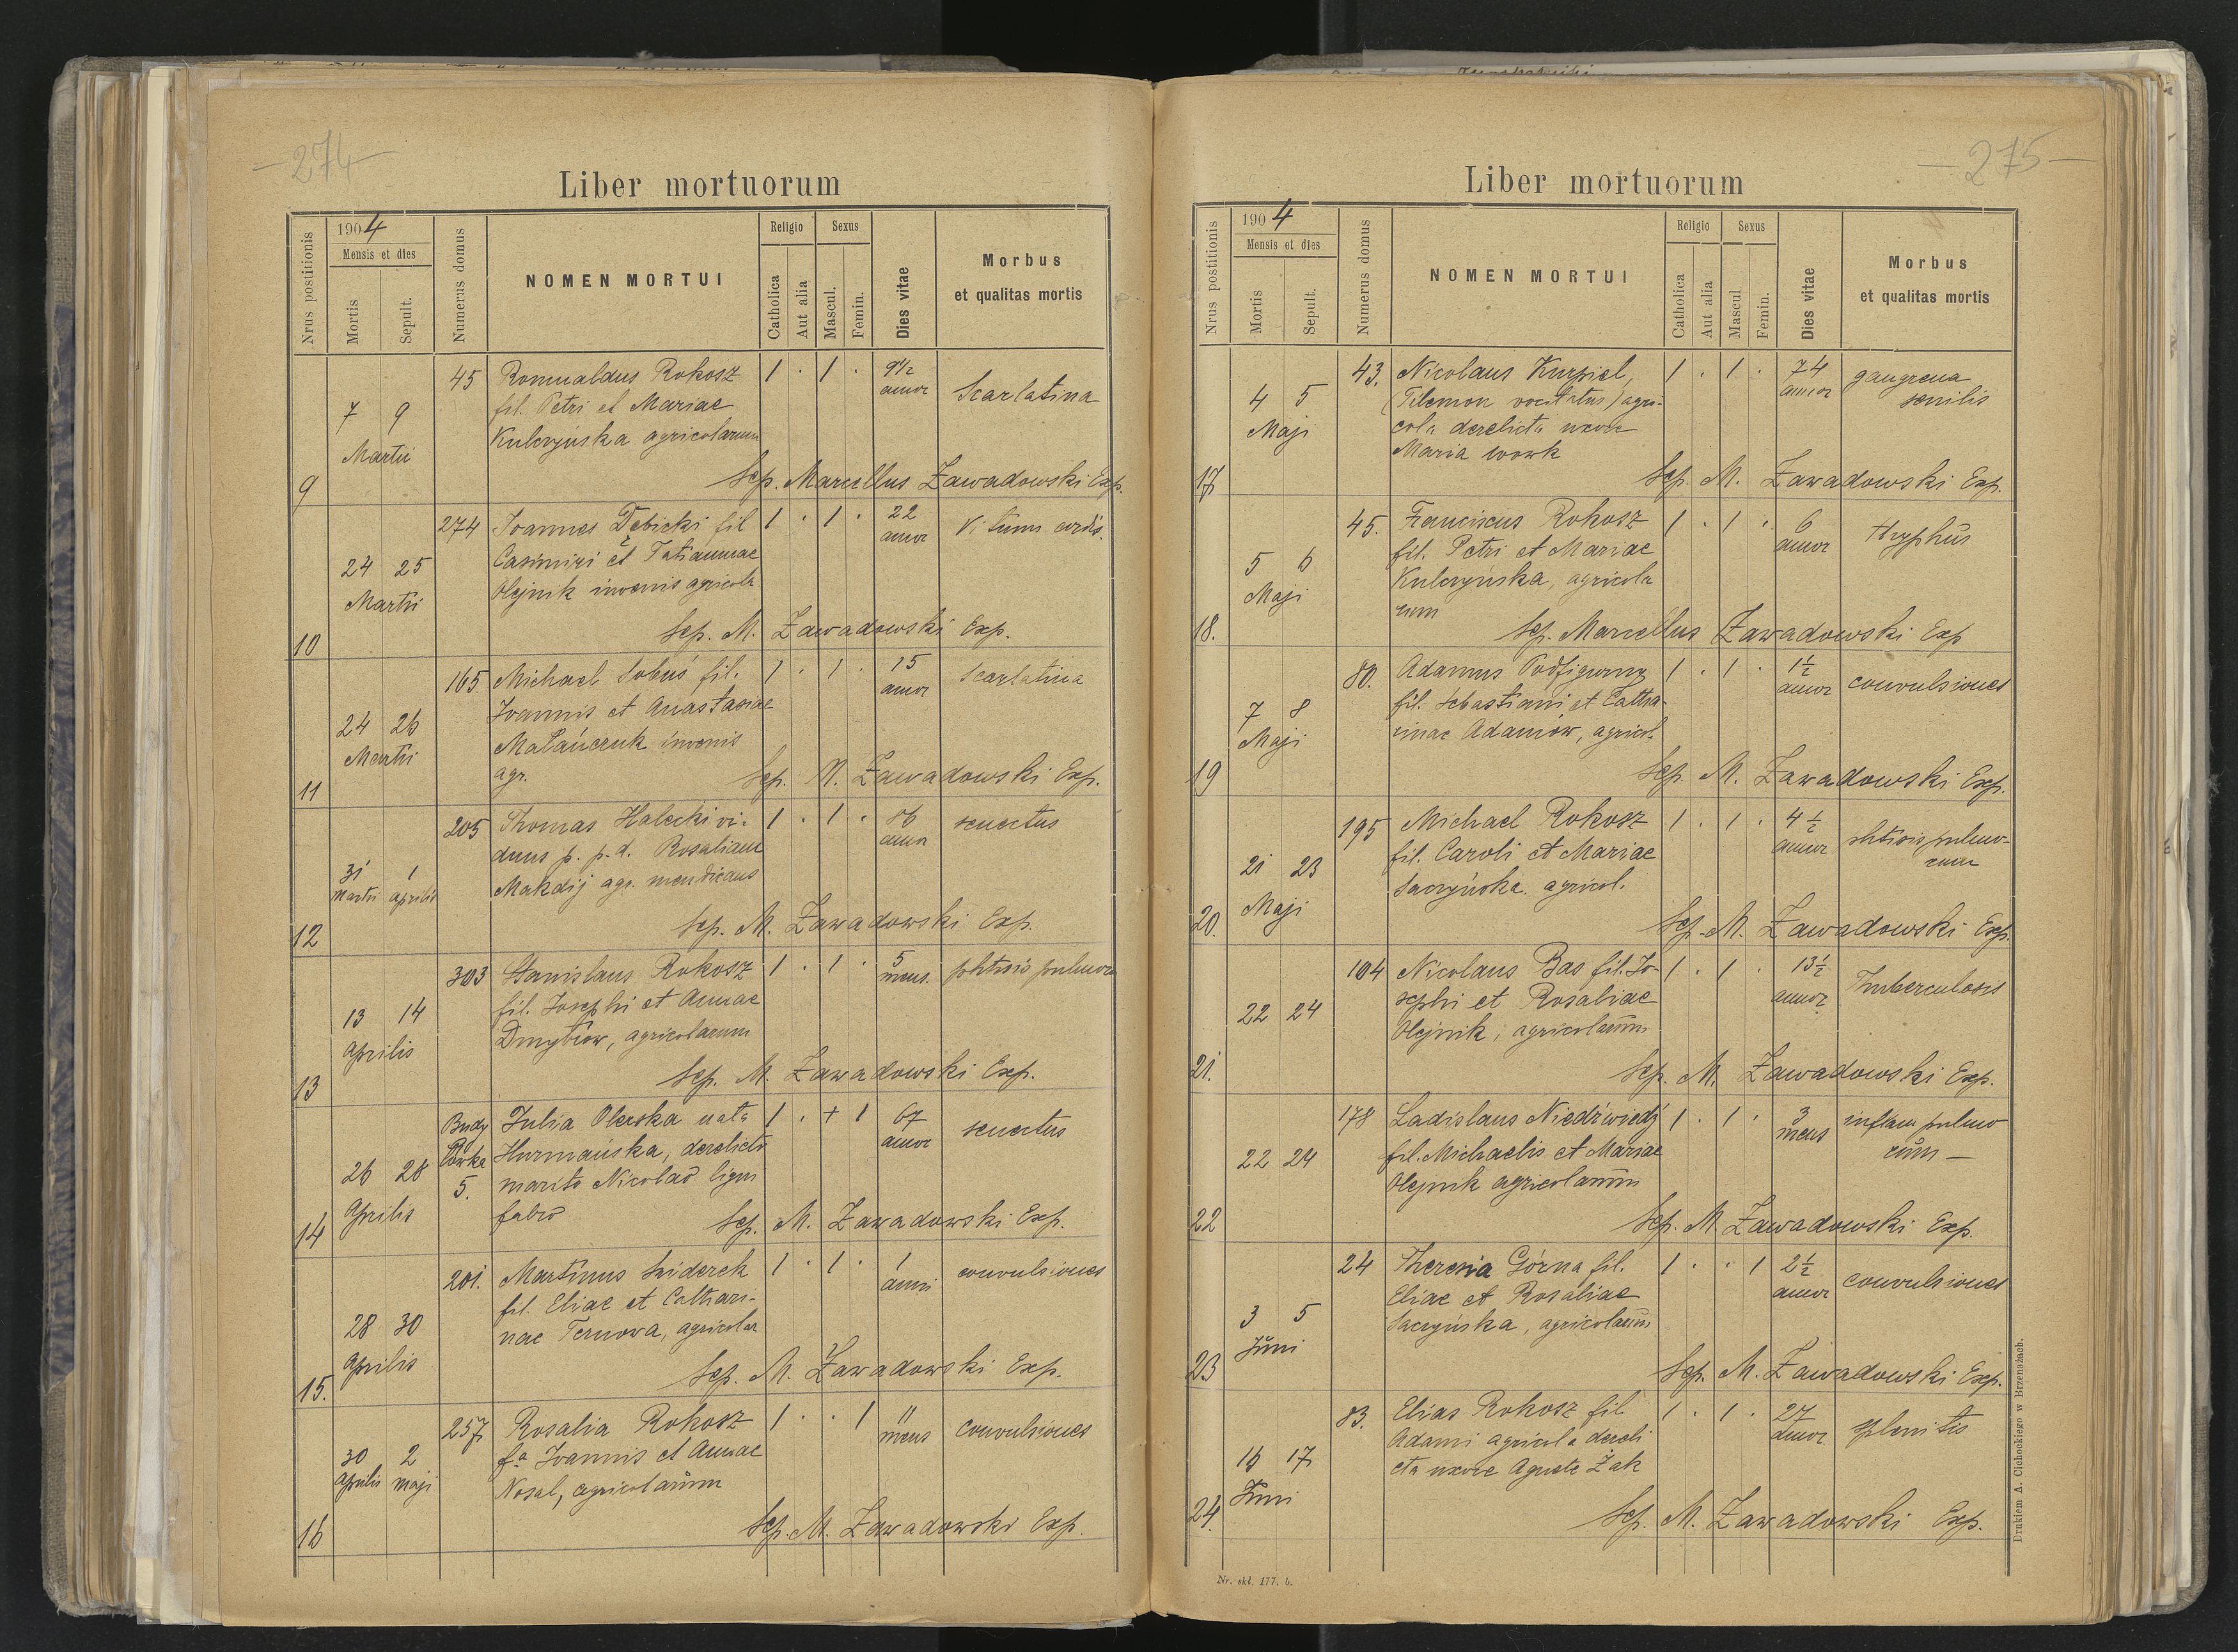 — 274 —
Liber mortuorum
Nrus postitionis
1904
Mensis et dies
Mortis
Sepult.
Numerus domus
NOMEN MORTUI
Religio
Catholica
Aut alia
Sexus
Mascul.
Femin.
Dies vitae
Morbus
et qualitas mortis
9
7 9
Martii
45
Romualdus Rokosz
fil. Petri et Mariae
Kulczyńska agricolarum
1 . 1 .
9 1/2
annor
Scarlatina
Sep. Marcellus Zawadowski Exp.
10
24 25
Martii
274
Joannes Dębicki fil
Casimiri et Tatiannae
Olejnik iuvenis agricola
1 . 1 .
22
annor
Vitium cordis.
Sep. M. Zawadowski Exp.
11
24 26
Martii
165.
Michael Sobuś fil.
Joannis et Anastasiae
Małańczuk iuvenis
agr.
1 . 1 .
15
annor
Scarlatina
Sep. M. Zawadowski Exp.
12
31 1
Martii Aprilis
205
Thomas Halecki vi-
duus p. p. d. Rosaliam
Makdij agr. mendicans
1 . 1 .
86
annor
senectus
Sep. M. Zawadowski Exp.
13
13 14
Aprilis
303
Stanislaus Rokosz
fil. Josephi et Annae
Dmytrow, agricolarum
1 . 1 .
5
mens.
phtisis pulmon
Sep. M. Zawadowski Exp.
14
26 28
Aprilis
Budy
5.
Julia Olerska nata
Hurmańska, derelicto
marito Nicolao ligni
fabro
1 . + 1
67
annor
senectus
Sep. M. Zawadowski Exp.
15.
28 30
Aprilis
201.
Martinus Sziderek
fil. Eliae et Cathari-
nae Ternowa, agricolar
1 . 1 .
1
anni
convulsiones
Sep. M. Zawadowski Exp.
16
30 2
Aprilis Maji
257
Rosalia Rokosz
fa Joannis et Annae
Nosal, agricolarum
1 . . 1
11
mens
convulsiones
Sep. M. Zawadowski Exp.
— 275 —
Liber mortuorum
Nrus postitionis
1904
Mensis et dies
Mortis
Sepult.
Numerus domus
NOMEN MORTUI
Religio
Catholica
Aut alia
Sexus
Mascul.
Femin.
Dies vitae
Morbus
et qualitas mortis
17
4 5
Maji
43.
Nicolaus Kurpiel,
(Filemon vocitatus) agri-
cola derelicta uxore
Maria Wowk
1 . 1 .
74
annor
gangrena
senilis
Sep. M. Zawadowski Exp.
18.
5 6
Maji
45.
Franciscus Rokosz
fil. Petri et Mariae
Kulczyńska, agricola
rum
1 . 1 .
6
annor
Thyphus
Sep. Marcellus Zawadowski Exp
19
7 8
Maji
80.
Adamus Podfigurny
fil. Sebastiani et Catha-
rinae Adamów, agricol.
1 . 1 .
1 1/2
annor
convulsiones
Sep. M. Zawadowski Exp.
20.
21 23
Maji
195
Michael Rokosz
fil. Caroli et Mariae
Saczyńska agricol.
1 . 1 .
4 1/2
annor
phtisis pulmo-
num
Sep. M. Zawadowski Exp.
21.
22 24
104
Nicolaus Bas fil. Jo-
sephi et Rosaliae
Olejnik, agricolarum
1 . 1 .
13 1/2
annor
Thuberculosis
Sep. M. Zawadowski Exp.
22
22 24
178
Ladislaus Niedźwiedź
fil. Michaelis et Mariae
Olejnik agricolarum
1 . 1 .
3
mens
inflam pulmo
num —
Sep. M. Zawadowski Exp.
23
3 5
Juni
24
Theresia Górna fil.
Eliae et Rosaliae
Saczyńska, agricolarum
1 . . 1
2 1/2
annor
convulsiones
Sep. M. Zawadowski Exp.
24.
16 17
Juni
83.
Elias Rokosz fil
Adami agricola dereli
cta uxore Agneta Żak
1 . 1 .
27
annor
splenitis
Sep. M. Zawadowski Exp.
Nr. skł. 177. b.
Drukiem A. Cichockiego w Brzeżanach.